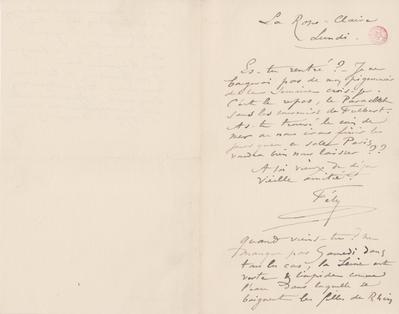 La Rose-Claire
Lundi.
Es-tu rentré ? – Je ne
pas de mes
de la Semaine, crois-je.
C'est le repos, le Paraclet
sans les souvenirs de Fulbert.
As-tu trouvé le coin de
mer où nous irons finir les
jours que ce sale Paris
voudra bien nous laisser ??
A toi vieux de déjà
vieille amitié !
Fély
Quand viens-tu ? ne
manque pas Samedi dans
tous les cas, la Seine est
verte & limpide comme
l'eau dans laquelle se
baignent les filles du Rhin